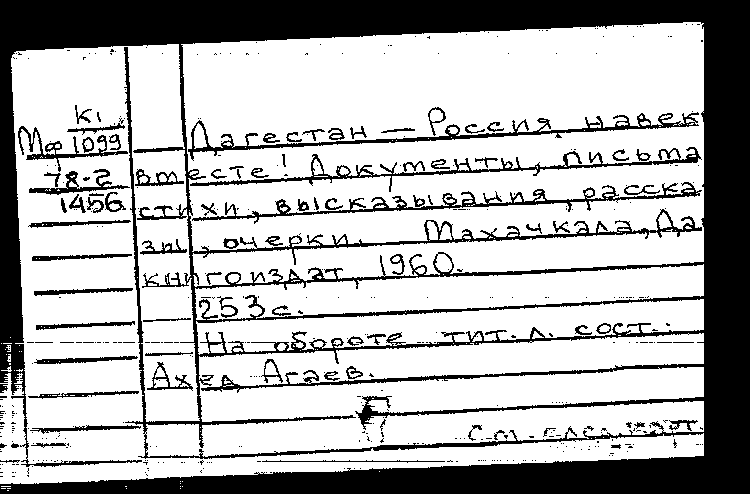 К1
Мф 1099
78-2
1456
Дагестан — Россия навек
вместе! Документы, письма
стихи, высказывания, расска
зы, очерки. Махачкала, Даг
книгоиздат, 1960.
253 с.
На обороте тит. л. сост.:
Ахед Агаев.
См. след. карт.